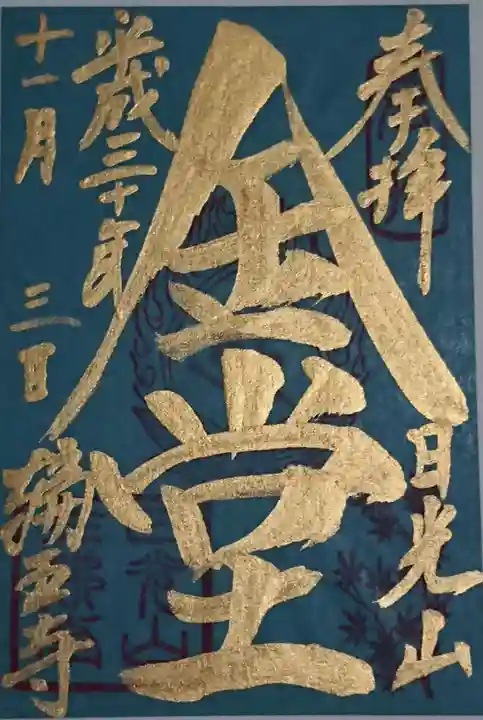 奉拝
日光山
金堂
平成三十年
十一月 三日
輪王寺